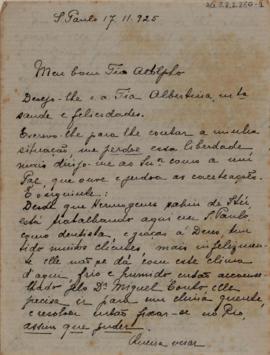 S. Paulo 17.11.925
Meu bom Tio Adolpho
Desejo-lhe e a Tia Albertina, mta
saude e felicidades.
Escrevo-lhe para lhe contar a minha
situação, me perdoe essa liberdade
mais dirijo-me ao Snr como a um
Pae que ouve e perdoa as
É o siguinte:
Desde que Hermogenes sahiu de
está trabalhando aqui em S. Paulo,
como dentista, e graças á Deus, tem
tido muitos clientes, mais infelizmen-
te elle não se dá com este clima
d'aqui, frio e humido então aconse-
lhado pelo Dr Miguel Couto, elle
precisa ir para um clima quente,
e resolveu então fixar-se no Rio,
assim que puder.
Queria